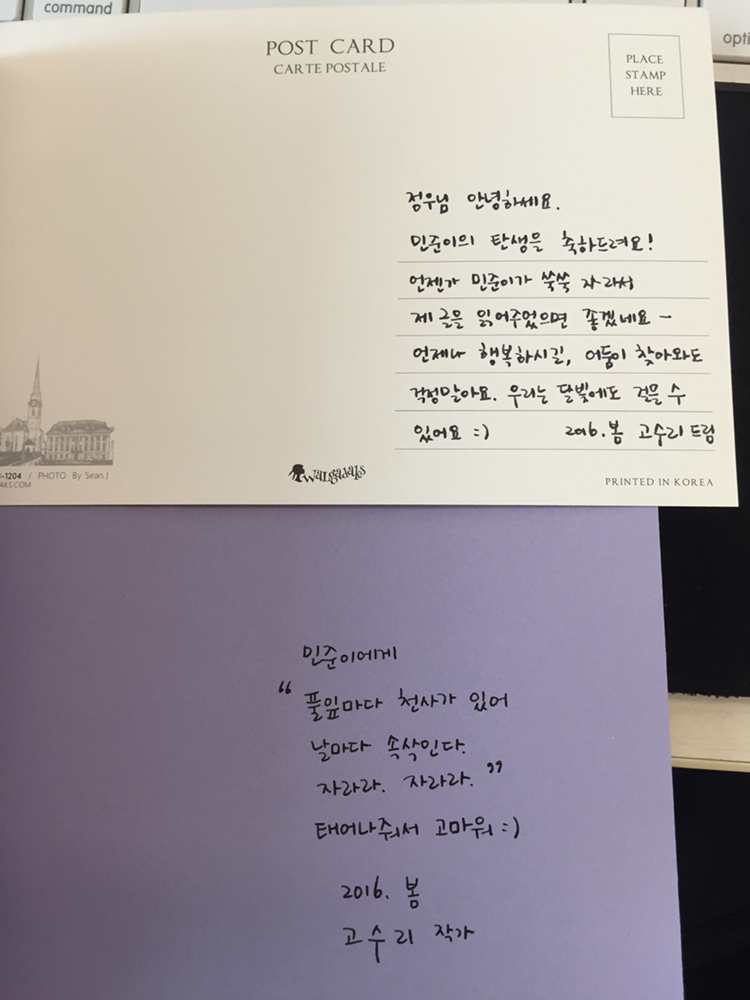 command
opti
POST CARD
CARTE POSTALE
PLACE
STAMP
HERE
정우님 안녕하세요.
민준이의 탄생을 축하드려요!
언젠가 민준이가 쑥쑥 자라서
제 글을 읽어주었으면 좋겠네요 ~
언제나 행복하시길, 어둠이 찾아와도
걱정말아요. 우리는 달빛에도 걸을 수
있어요 :) 2016. 봄 고수리 드림
-1204 / PHOTO By Sean.J
AKS.COM
PRINTED IN KOREA
민준이에게
“ 풀잎마다 천사가 있어
날마다 속삭인다.
자라라. 자라라. ”
태어나줘서 고마워 :)
2016. 봄
고수리 작가